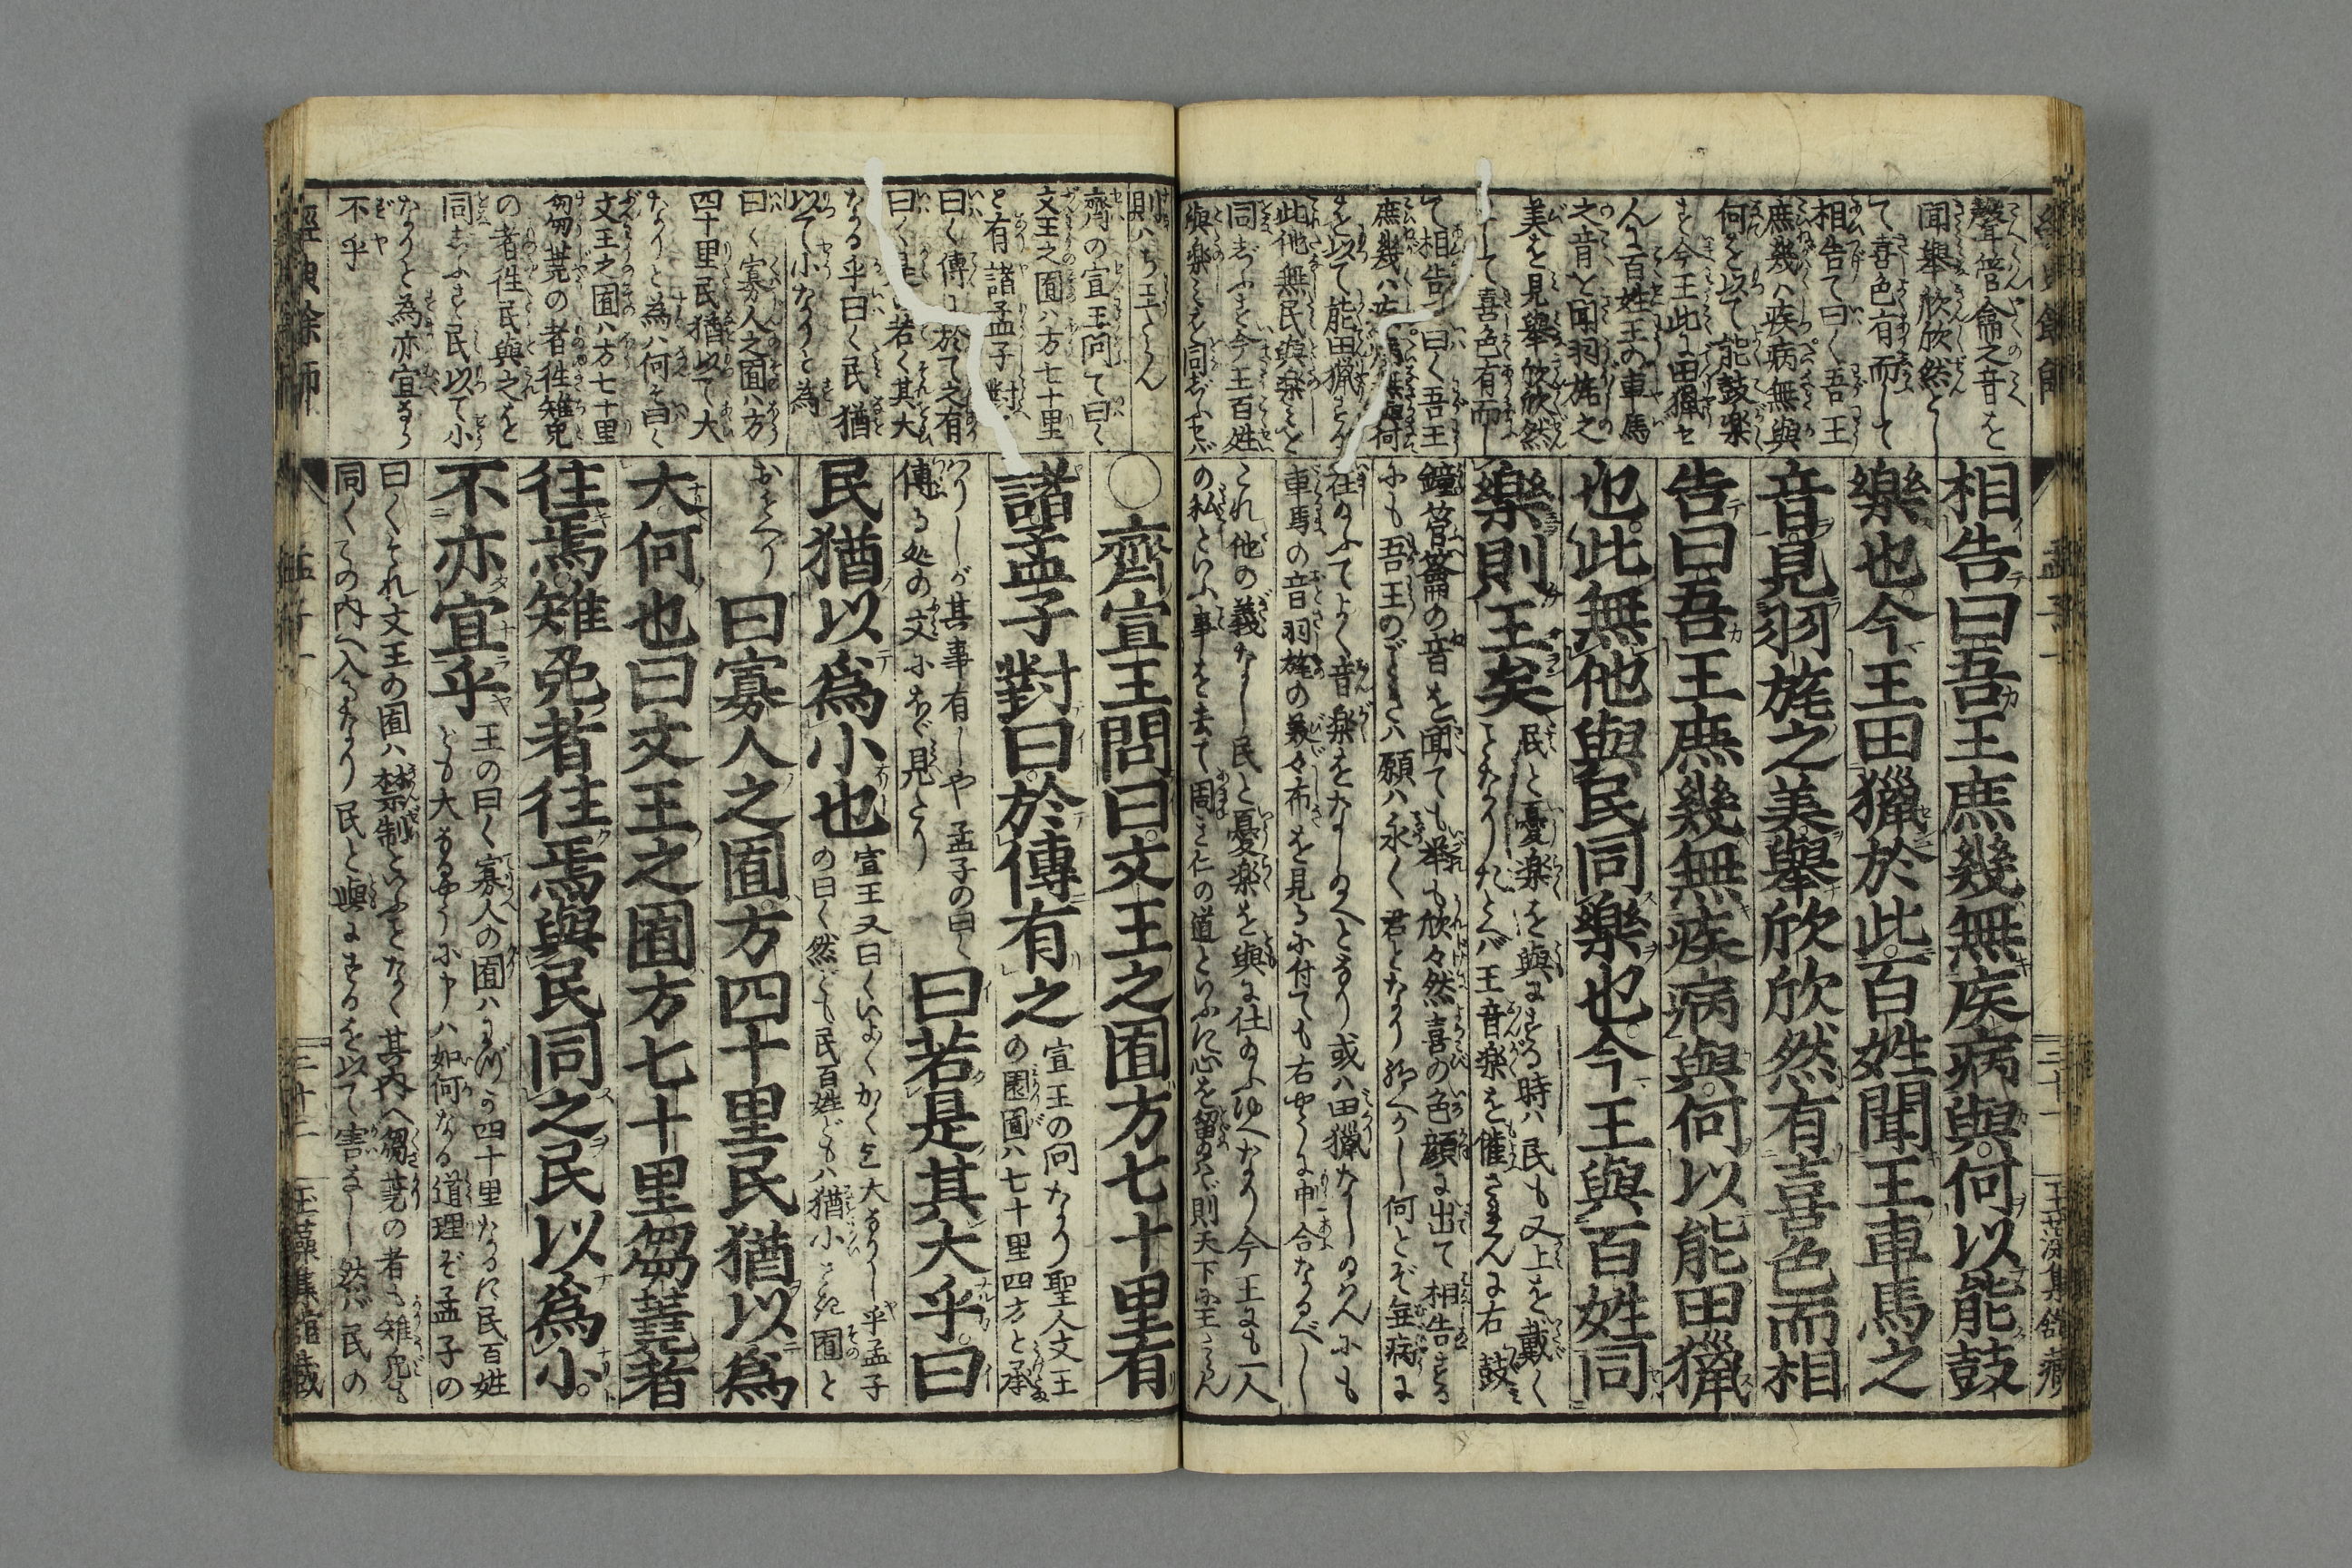 聲管籥之音を
聞舉欣欣然とし
て喜色有而して
相告て曰く吾王
庶幾ハ疾病無與
何を以て能鼓樂
すや今王此に田獵せ
んに百姓王の車馬
之音を聞羽旄之
美を見舉欣欣然
として喜色有而し
て相告て曰く吾王
庶幾ハ疾病無與何
を以て能田獵するや
此他無民與樂みを
同じふす今王百姓
與樂みを同じふせバ
相告曰吾王庶幾無疾病與何以能鼓
樂也今王田獵於此百姓聞王車馬之
音見羽旄之美舉欣欣然有喜色而相
告曰吾王庶幾無疾病與何以能田獵
也此無他與民同樂也今王與百姓同
樂則王矣
民と憂樂を與にする時ハ民も又上を戴く
ことなりたとへバ王音樂を催さまんに右鼓
鐘管籥の音を聞ても举も欣々然喜の色顔に出て相告する
にも吾王のごときハ願ハ永く君となり何とぞ無病に
在のふてよく音楽をなしのへとなり或ハ田獵なしのめんにも
車馬の音羽旄の義々布を見る小付ても右やうに申合なるべし
これ他の義なし民と憂楽を與に仕のふゆへなり今王にも一人
の私といふ事を去て周き仁の道といふに心を留のハバ則天下に王たらん
三十一
則ハち王たらん
齊の宣王問て曰く
文王之囿ハ方七十里
と有諸孟子對
曰く傳に於て之有
曰く是若く其大
なる乎曰く民猶
以て小なりと為
曰く寡人之囿ハ方
四十里民猶以て大
なりと為ハ何ぞ曰く
文王之囿ハ方七十里
芻蕘の者徃雉兔
の者徃民與之を
同じふす民以て小
なりと為亦宜なら
不乎
○齊宣王問曰文王之囿方七十里有
諸孟子對曰於傳有之
宣王の问なり聖人文王
の園囿ハ七十里四方と承
りしが其事有しや孟子の曰く
傳る処の文にあぐ見たり
曰若是其大乎曰
民猶以爲小也
宣王又曰くいよくかくも大なりし乎孟子
の曰く然ども民百姓どもハ猶小さき囿と
おもへり
曰寡人之囿方四十里民猶以爲
大何也曰文王之囿方七十里芻蕘者
往焉雉兔者往焉與民同之民以爲小
不亦宜乎
王の曰く寡人の囿ハわづか四十里なるに民百姓
ども大なるやうに申ハ如何なる道理ぞ孟子の
曰くそれ文王の囿ハ禁制といふことなく其内へ芻蕘の者も雉兔も
同くその内へ入るなり民と與にするを以て害なし然バ民の
經典餘師
孟子一
三十二
玉藻集舘藏